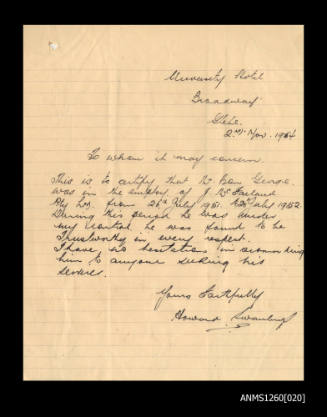 University Hotel
Broadway
Glebe.
2nd Nov. 1954
To whom it may concern.
This is to certify that Mr Ben George.
was in the employ of J Mc Farland
Pty Ltd. from 26th July 1951. to 2nd July 1952
During this period he was under
my control he was found to be
Trustworthy in every respect.
I have no hesitation in recommending
him to anyone seeking his
services.
Yours Faithfully
Howard
ANMS1260[020]